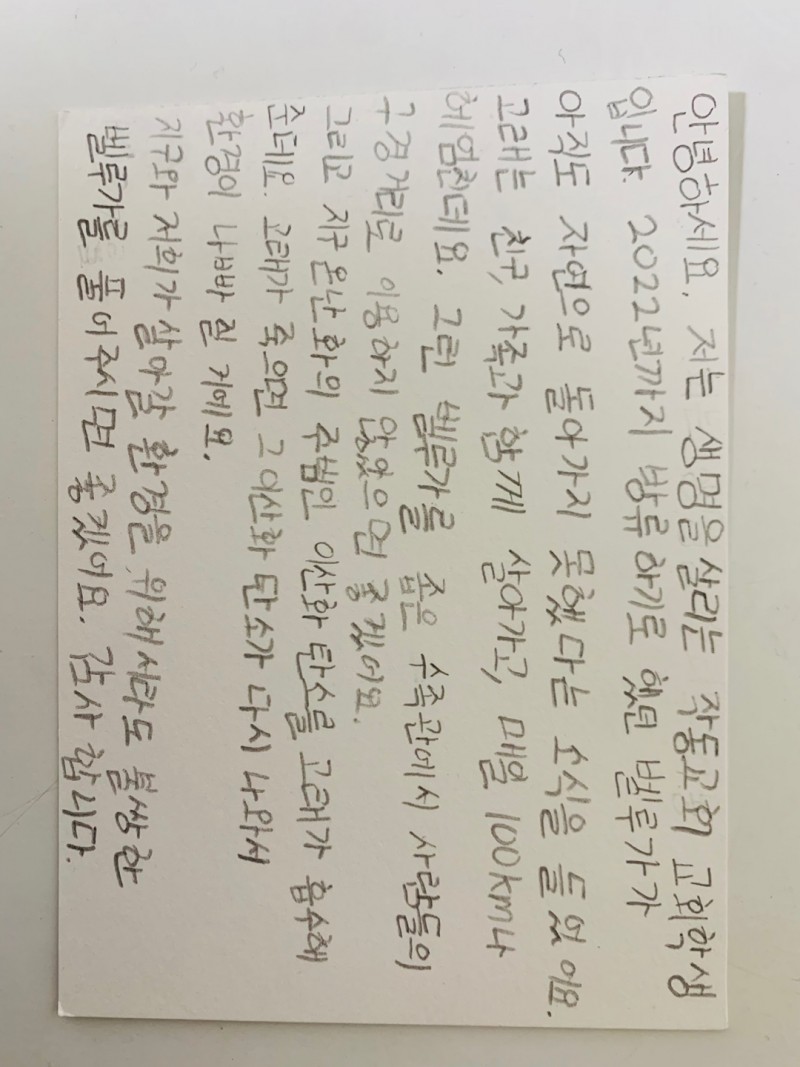 안녕하세요. 저는 생명을 살리는 작동교회 교회학생
입니다. 2022년까지 방류하기로 했던 벨루가가
아직도 자연으로 돌아가지 못했다는 소식을 들었어요.
고래는 친구, 가족과 함께 살아가고, 매일 100km나
헤엄친데요. 그런 벨루가를 좁은 수족관에서 사람들의
구경거리로 이용하지 않았으면 좋겠어요.
그리고 지구온난화의 주범인 이산화탄소를 고래가 흡수해
준데요. 고래가 죽으면 그 이산화탄소가 다시 나와서
환경이 나빠질 거에요.
지구와 저희가 살아갈 환경을 위해서라도 불쌍한
벨루가를 풀어주시면 좋겠어요. 감사합니다.